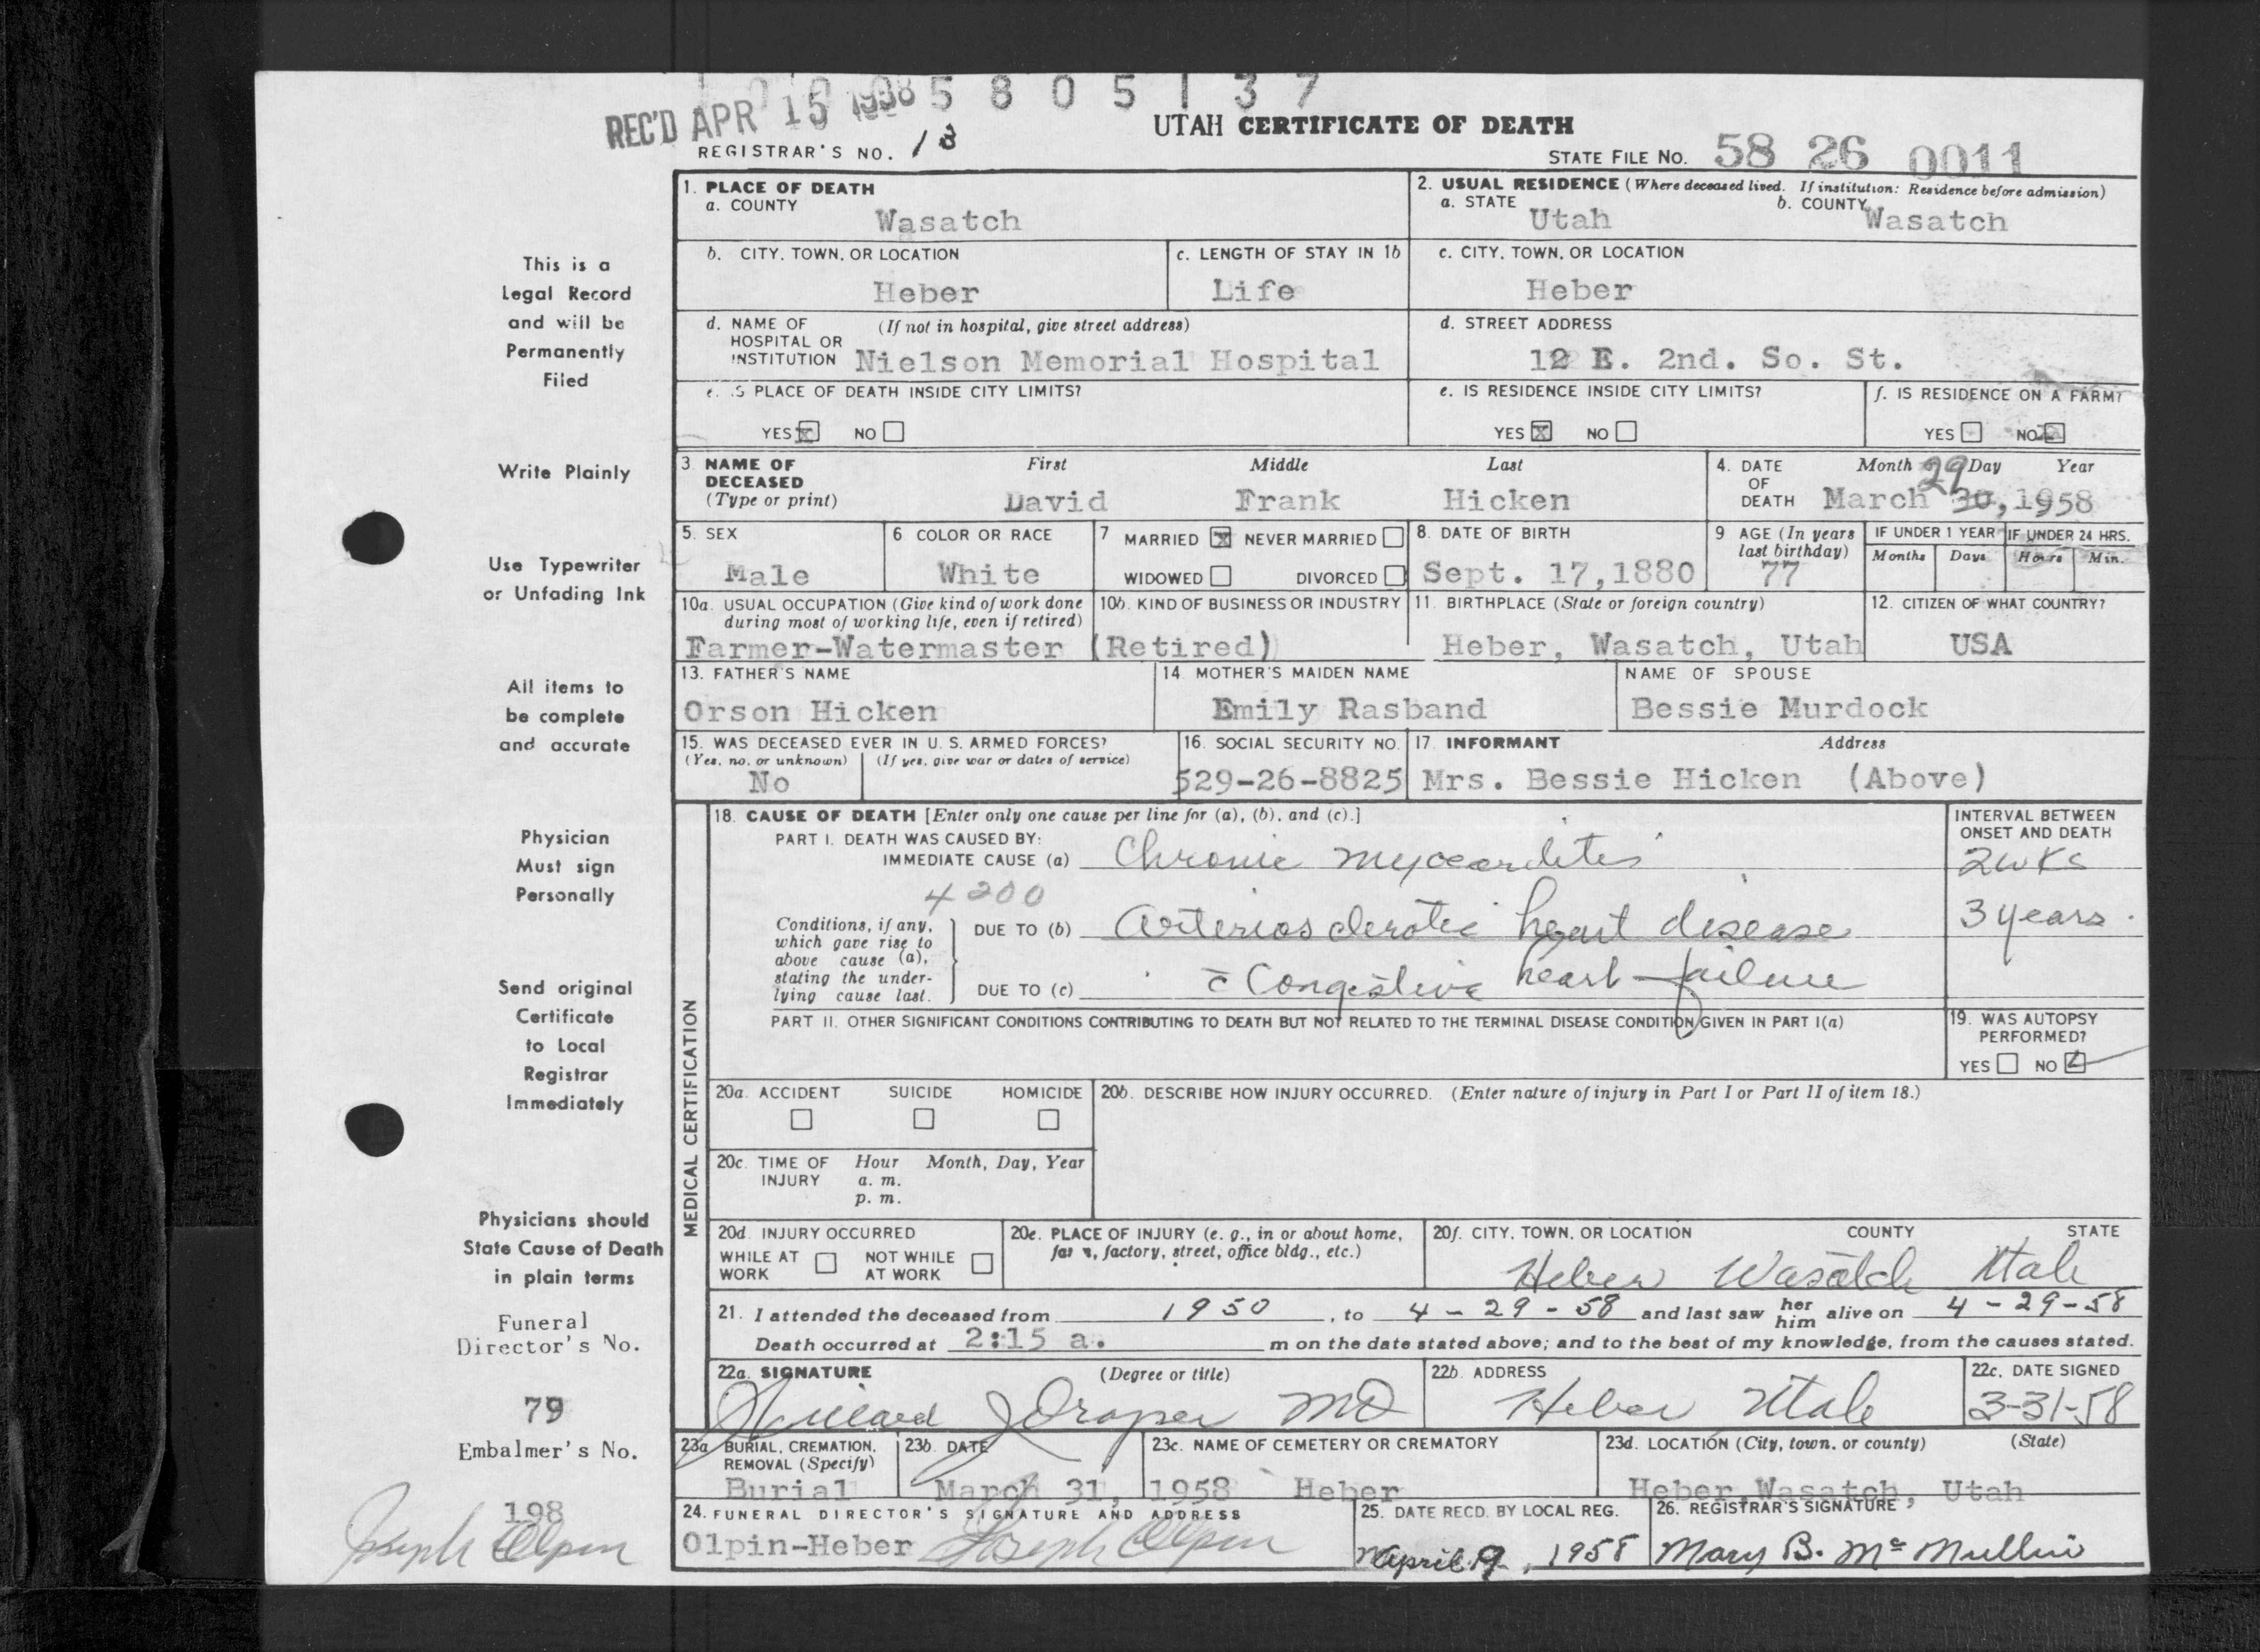 REC'D APR 15 1958 5 8 0 5 1 3 7
UTAH CERTIFICATE OF DEATH
REGISTRAR'S NO. 13
STATE FILE NO. 58 26 0011
1. PLACE OF DEATH
a. COUNTY
Wasatch
2. USUAL RESIDENCE (Where deceased lived. If institution: Residence before admission)
a. STATE Utah b. COUNTY Wasatch
b. CITY, TOWN, OR LOCATION
Heber
c. LENGTH OF STAY IN 1b
Life
c. CITY, TOWN, OR LOCATION
Heber
d. NAME OF HOSPITAL OR INSTITUTION (If not in hospital, give street address)
Nielson Memorial Hospital
d. STREET ADDRESS
12 E. 2nd. So. St.
e. IS PLACE OF DEATH INSIDE CITY LIMITS?
YES X NO
e. IS RESIDENCE INSIDE CITY LIMITS?
YES X NO
f. IS RESIDENCE ON A FARM?
YES NO X
3. NAME OF DECEASED (Type or print)
First Middle Last
David Frank Hicken
4. DATE OF DEATH
Month Day Year
29
March 30, 1958
5. SEX
Male
6 COLOR OR RACE
White
7 MARRIED X NEVER MARRIED
WIDOWED DIVORCED
8. DATE OF BIRTH
Sept. 17,1880
9 AGE (In years last birthday)
77
IF UNDER 1 YEAR
Months Days
IF UNDER 24 HRS.
Hours Min.
10a. USUAL OCCUPATION (Give kind of work done during most of working life, even if retired)
10b. KIND OF BUSINESS OR INDUSTRY
Farmer-Watermaster (Retired)
11. BIRTHPLACE (State or foreign country)
Heber, Wasatch, Utah
12. CITIZEN OF WHAT COUNTRY?
USA
13. FATHER'S NAME
Orson Hicken
14 MOTHER'S MAIDEN NAME
Emily Rasband
NAME OF SPOUSE
Bessie Murdock
15. WAS DECEASED EVER IN U. S. ARMED FORCES?
(Yes, no, or unknown) (If yes, give war or dates of service)
No
16. SOCIAL SECURITY NO.
529-26-8825
17. INFORMANT Address
Mrs. Bessie Hicken (Above)
MEDICAL CERTIFICATION
18. CAUSE OF DEATH [Enter only one cause per line for (a), (b), and (c).]
INTERVAL BETWEEN ONSET AND DEATH
PART I. DEATH WAS CAUSED BY:
IMMEDIATE CAUSE (a) Chronic myocarditis 2 wks
4200
Conditions, if any, which gave rise to above cause (a), stating the underlying cause last.
DUE TO (b) Arteriosclerotic heart disease 3 years
DUE TO (c) c̄ Congestive heart failure
PART II. OTHER SIGNIFICANT CONDITIONS CONTRIBUTING TO DEATH BUT NOT RELATED TO THE TERMINAL DISEASE CONDITION GIVEN IN PART I(a)
19. WAS AUTOPSY PERFORMED?
YES NO
20a. ACCIDENT SUICIDE HOMICIDE
20b. DESCRIBE HOW INJURY OCCURRED. (Enter nature of injury in Part I or Part II of item 18.)
20c. TIME OF INJURY Hour Month, Day, Year
a. m.
p. m.
20d. INJURY OCCURRED
WHILE AT WORK NOT WHILE AT WORK
20e. PLACE OF INJURY (e. g., in or about home, farm, factory, street, office bldg., etc.)
20f. CITY, TOWN, OR LOCATION COUNTY STATE
Heber Wasatch Utah
21. I attended the deceased from 1950, to 4-29-58 and last saw her him alive on 4-29-58
Death occurred at 2:15 a. m on the date stated above; and to the best of my knowledge, from the causes stated.
22a. SIGNATURE (Degree or title)
Draper MD
22b. ADDRESS
Heber Utah
22c. DATE SIGNED
3-31-58
23a BURIAL, CREMATION, REMOVAL (Specify)
Burial
23b. DATE
March 31, 1958
23c. NAME OF CEMETERY OR CREMATORY
Heber
23d. LOCATION (City, town, or county) (State)
Heber, Wasatch, Utah
24. FUNERAL DIRECTOR'S SIGNATURE AND ADDRESS
Olpin-Heber Joseph Olpin
25. DATE RECD. BY LOCAL REG.
April 9, 1958
26. REGISTRAR'S SIGNATURE
Mary B. Mc Mullin
This is a
Legal Record
and will be
Permanently
Filed
Write Plainly
Use Typewriter
or Unfading Ink
All items to
be complete
and accurate
Physician
Must sign
Personally
Send original
Certificate
to Local
Registrar
Immediately
Physicians should
State Cause of Death
in plain terms
Funeral
Director's No.
79
Embalmer's No.
198
Joseph Olpin